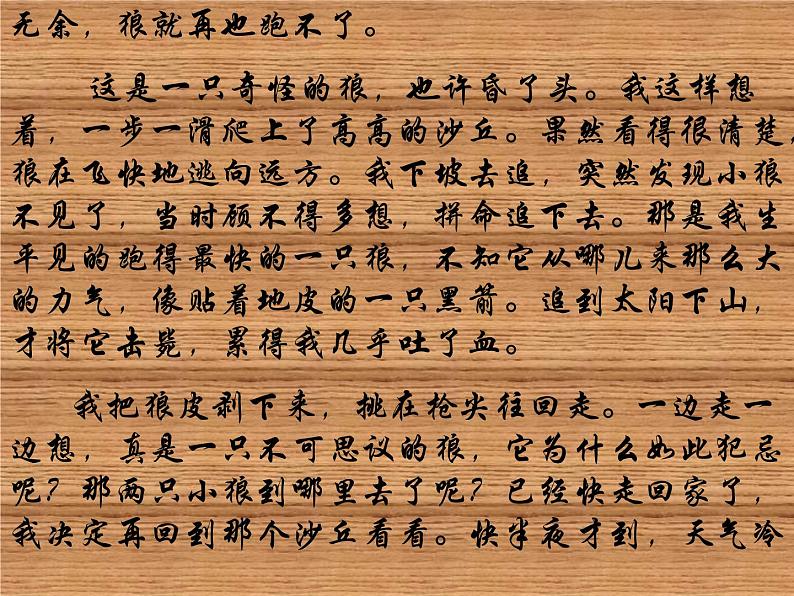 无余，狼就再也跑不了。
这是一只奇怪的狼，也许昏了头。我这样想
着，一步一滑爬上了高高的沙丘。果然看得很清楚，
狼在飞快地逃向远方。我下坡去追，突然发现小狼
不见了，当时顾不得多想，拼命追下去。那是我生
平见的跑得最快的一只狼，不知它从哪儿来那么大
的力气，像贴着地皮的一只黑箭。追到太阳下山，
才将它击毙，累得我几乎吐了血。
我把狼皮剥下来，挑在枪尖往回走。一边走一
边想，真是一只不可思议的狼，它为什么如此犯忌
呢？那两只小狼到哪里去了呢？已经快走回家了，
我决定再回到那个沙丘看看。快半夜才到，天气冷